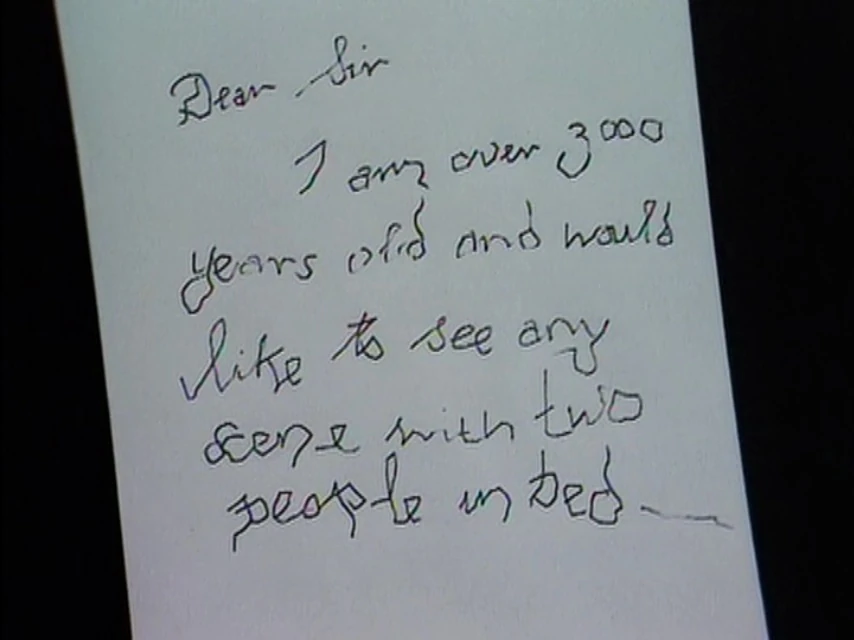 Dear Sir
I am over 3000
years old and would
like to see any
scene with two
people in bed